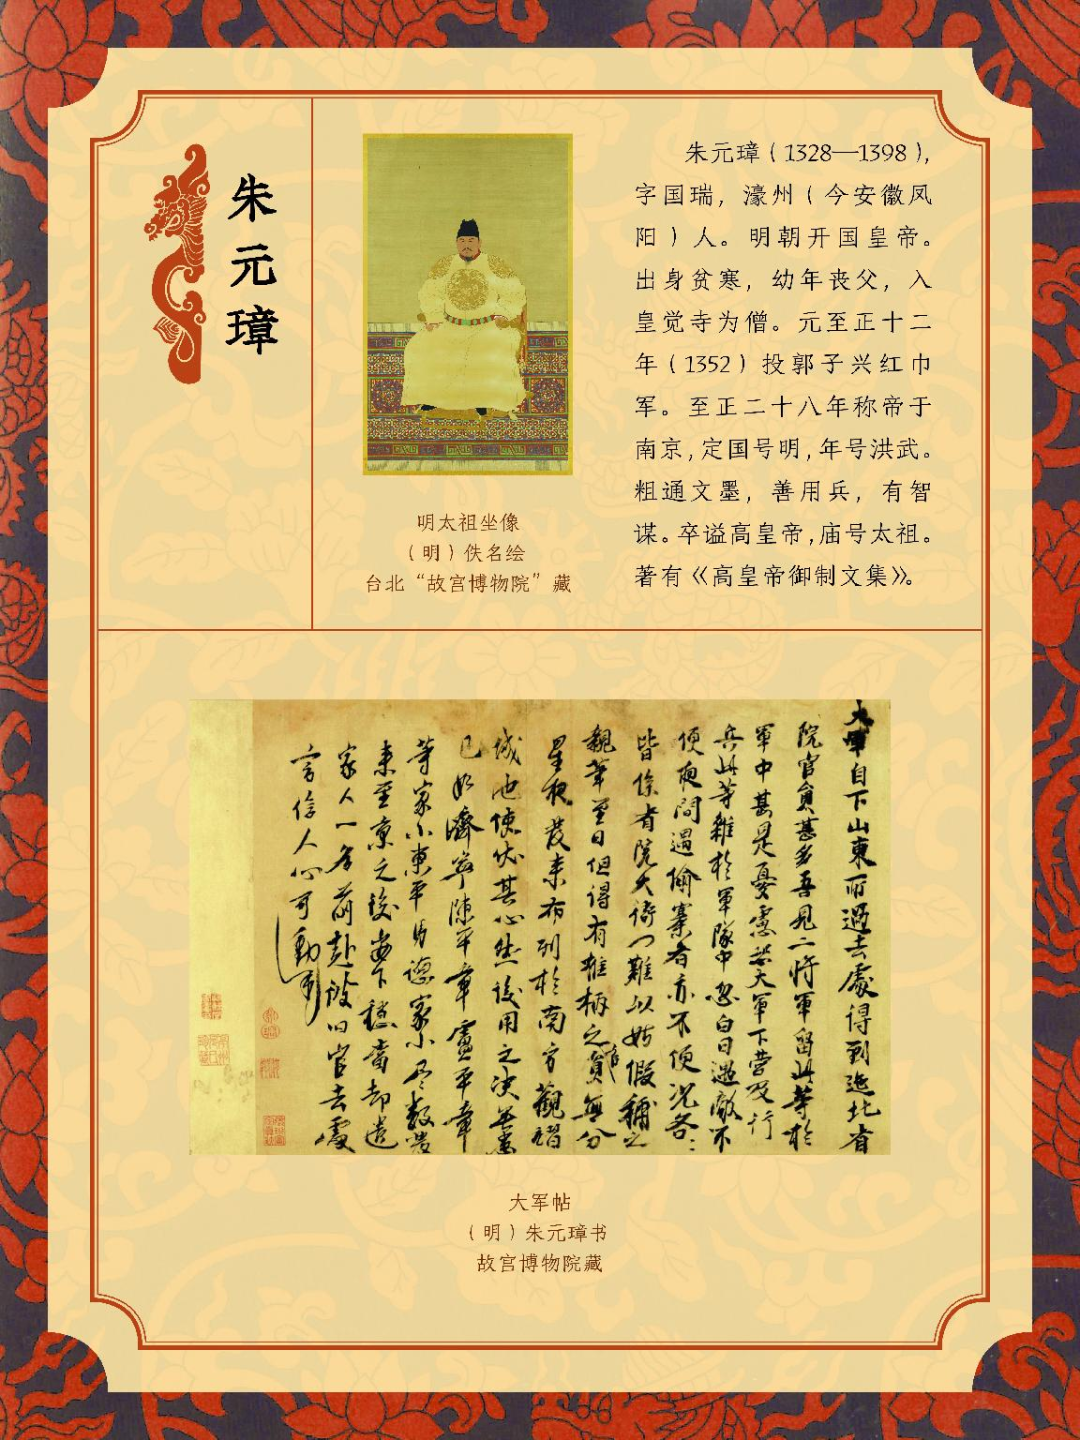 朱元璋
朱元璋（1328—1398），
字国瑞，濠州（今安徽凤
阳）人。明朝开国皇帝。
出身贫寒，幼年丧父，入
皇觉寺为僧。元至正十二
年（1352）投郭子兴红巾
军。至正二十八年称帝于
南京，定国号明，年号洪武。
粗通文墨，善用兵，有智
谋。卒谥高皇帝，庙号太祖。
著有《高皇帝御制文集》。
明太祖坐像
（明）佚名绘
台北“故宫博物院”藏
大軍自下山東所過去處得到迤北省
院官員甚多吾見二將軍留此等於
軍中甚是憂慮恐大軍下營及行
兵此等雜於軍隊中忽白日遇敵不
便夜間遇偷寨者亦不便況各〻
皆係省院大衙門難以姑假稱之
親筆至日但得有椎柄之官員無分
星夜發来布列於南方觀習
城池使伏其心然後用之決無患
已如濟寧陳平章盧平章
等家小東平馬德家小尽数發
来至京之後安下穩當却遣
家人一名前赴彼旧官去處
言信人心可動
大军帖
（明）朱元璋书
故宫博物院藏